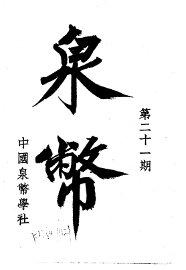 泉幣
第二十一期
中國泉幣學社